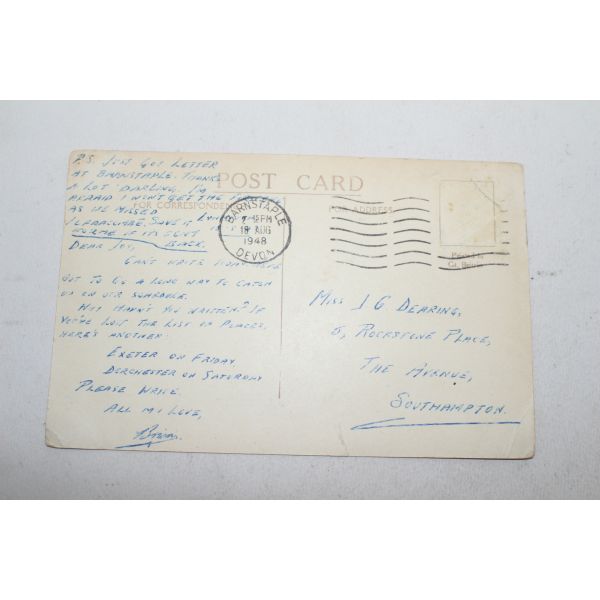 P.S. JUST GOT LETTER
AT BARNSTAPLE. THANKS
A LOT DARLING. I'M
AFRAID I WON'T GET THE
AS WE MISSED
ILFRACOMBE, SAVE IT
FOR ME IF IT'S SENT
BACK.
POST CARD
FOR CORRESPONDENCE
FOR ADDRESS
BARNSTAPLE
7-15PM
18 AUG
1948
DEVON
Printed in
Gt. Britain
DEAR JOY,
CAN'T WRITE MUCH
GOT TO GO A LONG WAY TO CATCH
UP ON OUR SCHEDULE.
WHY HAVN'T YOU WRITTEN? IF
YOU'VE LOST THE LIST OF PLACES,
HERE'S ANOTHER:
EXETER ON FRIDAY
DORCHESTER ON SATURDAY
PLEASE WRITE.
ALL MY LOVE,
Brian.
MISS J G DEARING,
5, ROCKSTONE PLACE,
THE AVENUE,
SOUTHAMPTON.